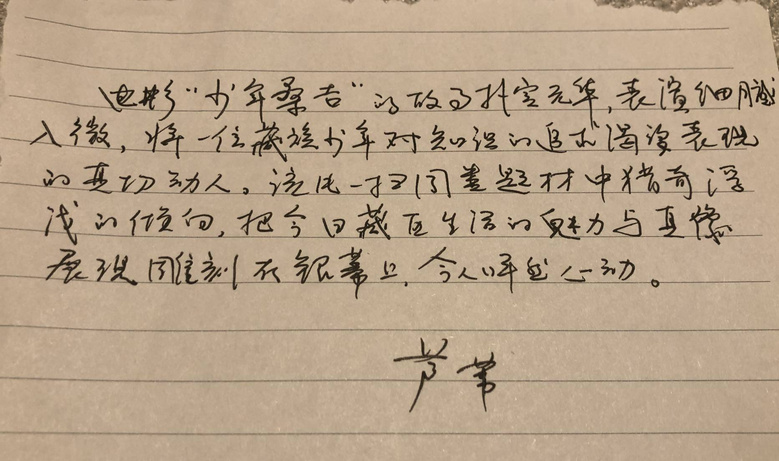 电影“少年桑吉”的故事朴实无华，表演细腻
入微，将一位藏族少年对知识的追求渴望表现
的真切动人。该片一扫同类题材中猎奇浮
浅的倾向，把今日藏区生活的魅力与真像
展现雕刻在银幕上，令人怦然心动。
芦苇